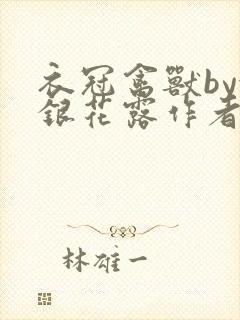 衣冠禽獸by
銀花露作者
林雄一